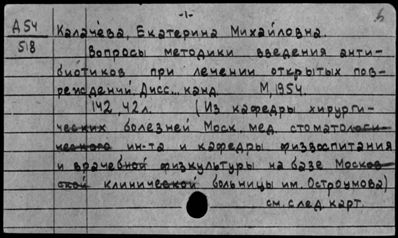 -1-
А54
518
Калачёва, Екатерина Михайловна.
Вопросы методики введения анти-
биотиков при лечении открытых пов-
реждений. Дисс... канд. М, 1954.
142, 42 л. (Из кафедры хирурги-
ческих болезней Моск. мед. стоматологи-
ческого ин-та и кафедры физвоспитания
и врачебной физкультуры на базе Москов-
ской клинической больницы им. Остроумова)
см. след. карт.